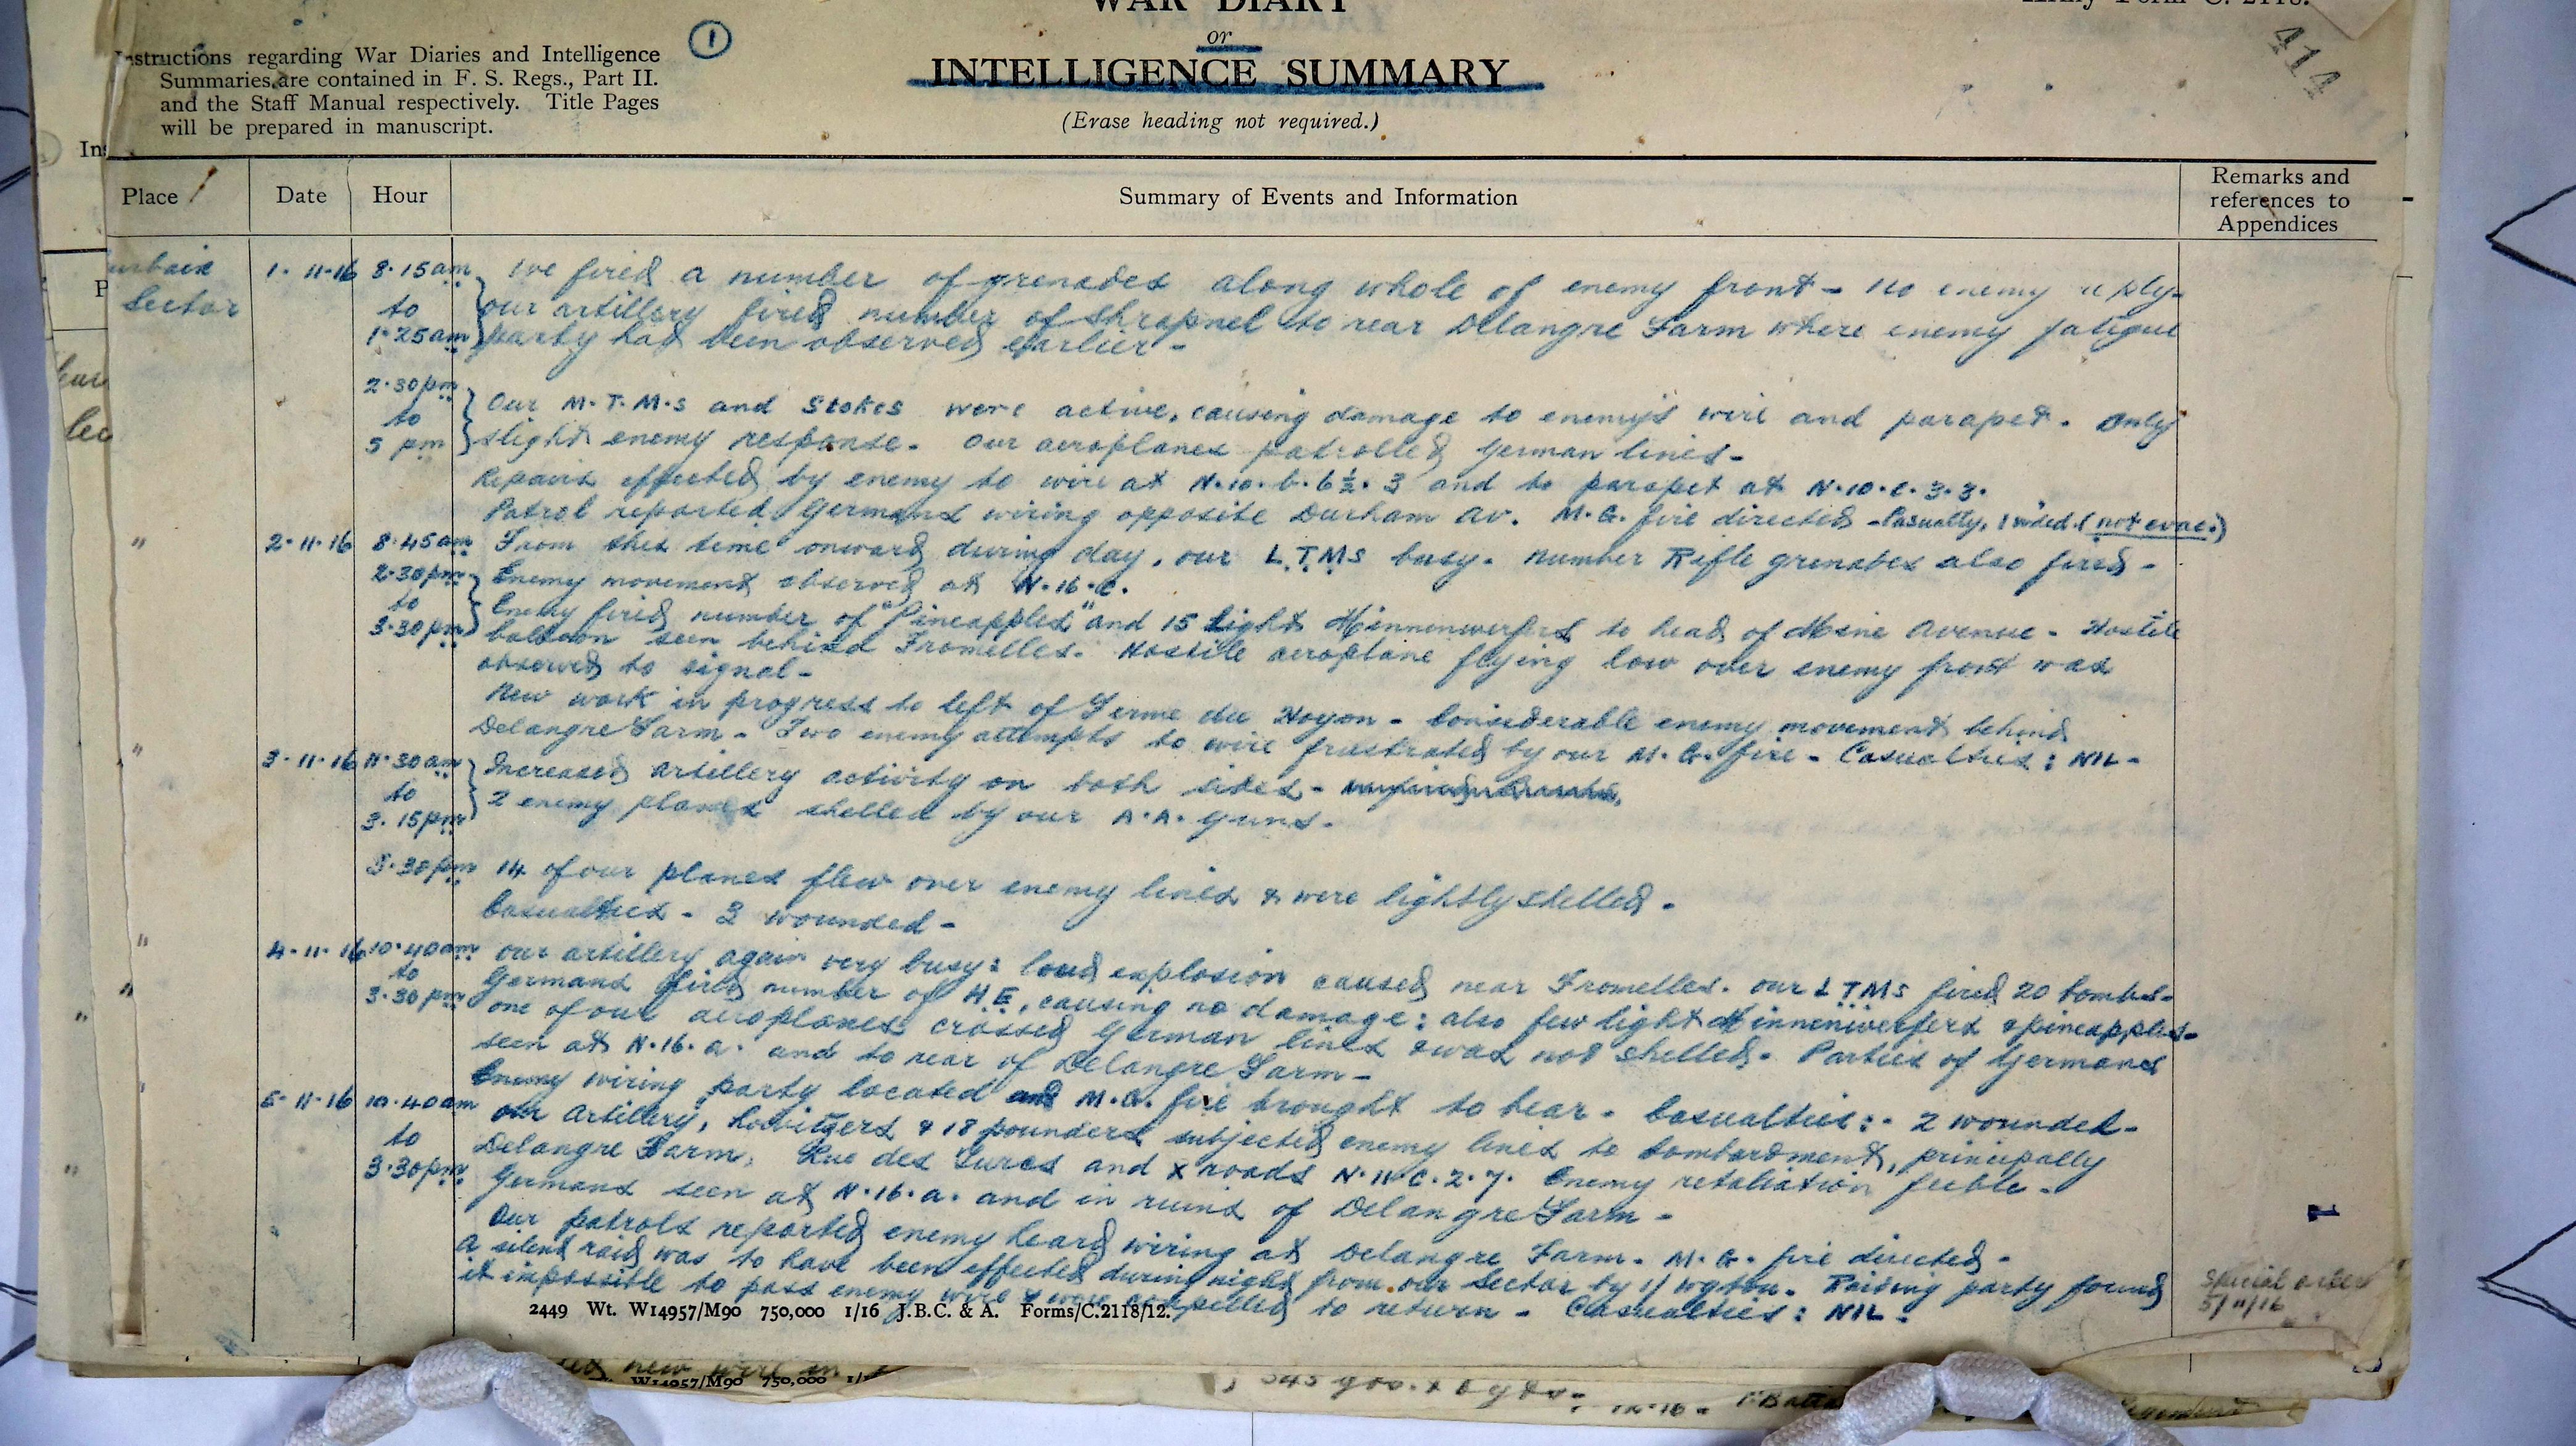 WAR DIARY
or
INTELLIGENCE SUMMARY
(Erase heading not required.)
Army Form C. 2118.
414
Instructions regarding War Diaries and Intelligence
Summaries are contained in F. S. Regs., Part II.
and the Staff Manual respectively. Title Pages
will be prepared in manuscript.
1
Place
Date
Hour
Summary of Events and Information
Remarks and
references to
Appendices
Sector
1-11-16 8·15am We fired a number of grenades along whole of enemy front - no enemy reply-
to our artillery fired number of shrapnel to rear Delangre Farm where enemy fatigue
1·25am party had been observed earlier -
2·30pm
to Our M.T.M.s and Stokes were active, causing damage to enemy's wire and parapet. Only
5 pm slight enemy response. Our aeroplanes patrolled German lines -
Repairs effected by enemy to wire at N.10.b.6½.3 and to parapet at N.10.c.3.3.
Patrol reported Germans wiring opposite Durham Av. M.G. fire directed - Casualty, 1 wded. (not evac.)
" 2-11-16 8·45am From this time onward during day, our L.T.M.s busy. Number Rifle grenades also fired -
2·30pm Enemy movement observed at N.16.c.
to Enemy fired number of "Pineapples" and 15 light Minnenwerfers to head of Mine Avenue - Hostile
3·30pm balloon seen behind Fromelles. Hostile aeroplane flying low over enemy front was
observed to signal -
New work in progress to left of Ferme du Noyon - Considerable enemy movement behind
Delangre Farm - Two enemy attempts to wire frustrated by our M.G. fire - Casualties: NIL -
" 3-11-16 11·30am Increased artillery activity on both sides -
to 2 enemy planes shelled by our A.A. guns.
3·15pm
14 of our planes flew over enemy lines & were lightly shelled.
Casualties - 3 wounded -
" 4-11-16 10·40am our artillery again very busy: loud explosion caused near Fromelles. our L.T.M.s fired 20 bombs-
to Germans fired number of H.E., causing no damage: also few light Minnenwerfers & pineapples-
3·30pm one of our aeroplanes crossed German lines & was not shelled. Parties of Germans
seen at N.16.a. and to rear of Delangre Farm -
Enemy wiring party located and M.G. fire brought to bear. Casualties:- 2 wounded-
5-11-16 10·40am our artillery, howitzers & 18 pounders subjected enemy lines to bombardment, principally
to Delangre Farm, Rue des Turcs and X roads N.11.c.2.7. Enemy retaliation feeble -
3·30pm Germans seen at N.16.a. and in ruins of Delangre Farm -
Our patrols reported enemy heard wiring at Delangre Farm. M.G. fire directed -
A silent raid was to have been effected during night from our Sector by 1/ Wgton. Raiding party found
it impossible to pass enemy wire & were compelled to return - Casualties: NIL.
Special order
5/11/16
2449 Wt. W14957/M90 750,000 1/16 J.B.C. & A. Forms/C.2118/12.
new wire in
W14957/M90 750,000